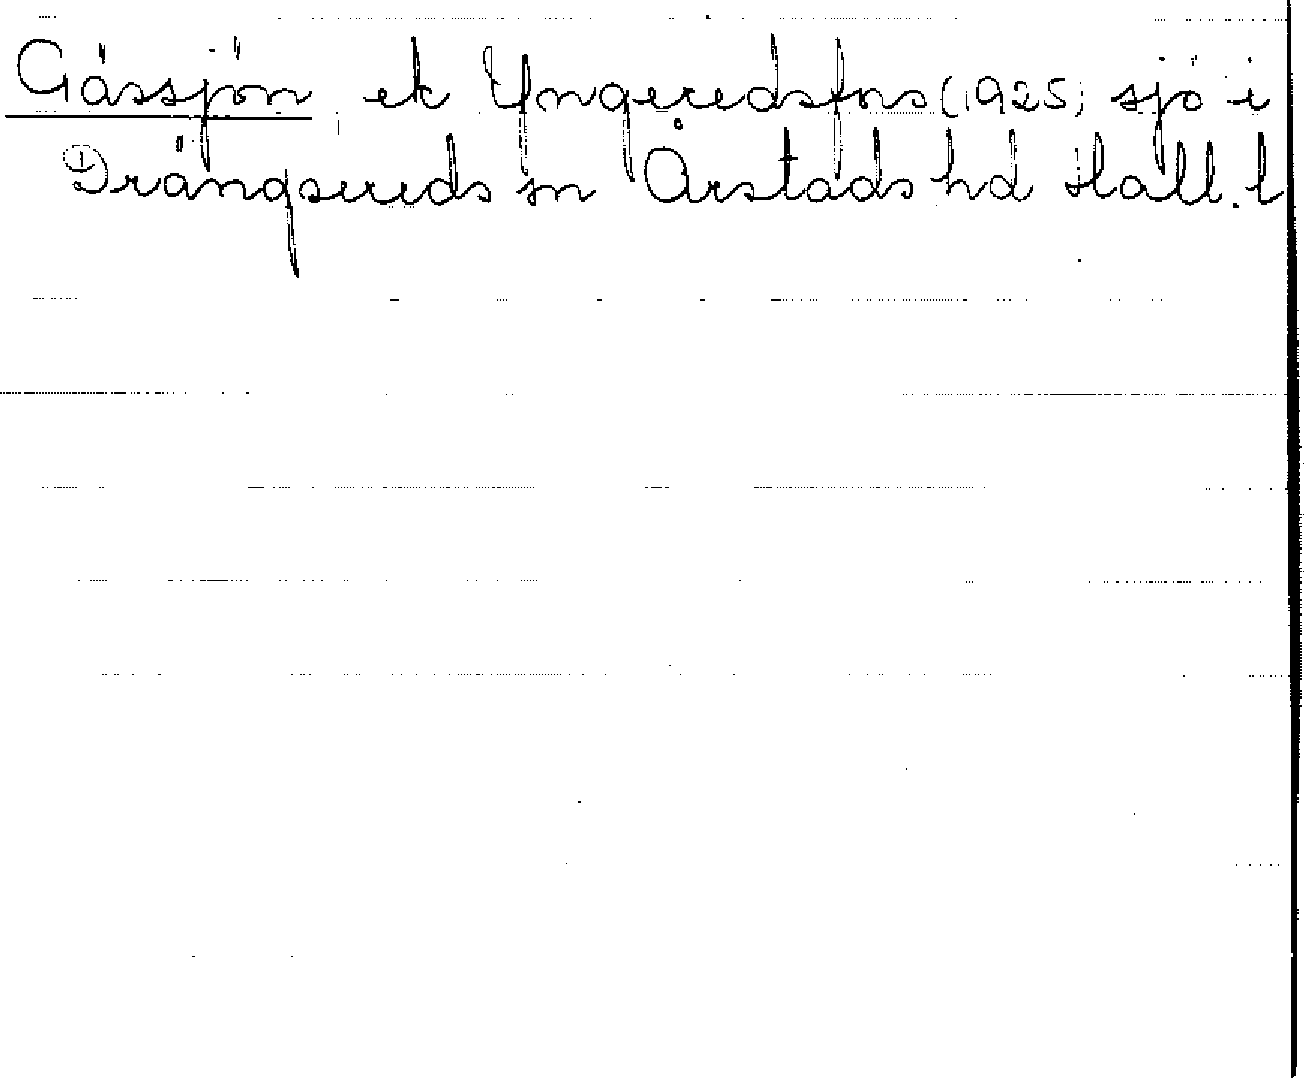 Gässjön, ek Yngeredsfors (1925) sjö i
Drängsereds sn Årstads hd Hall. l